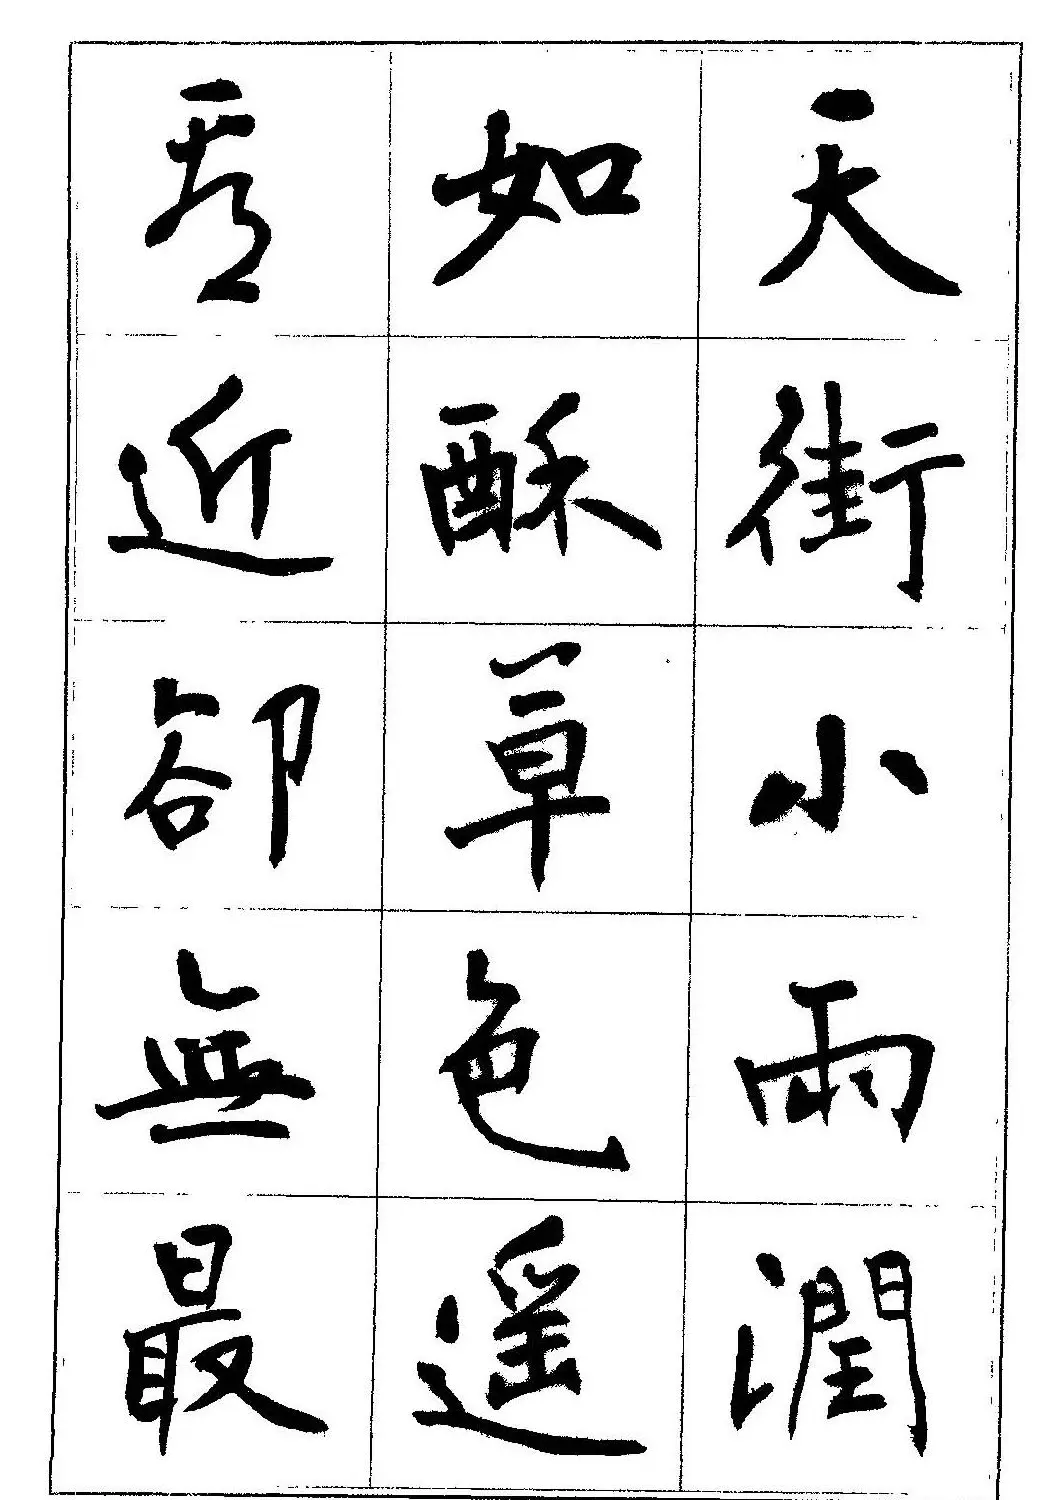 天街小雨潤
如酥草色遥
看近卻無最